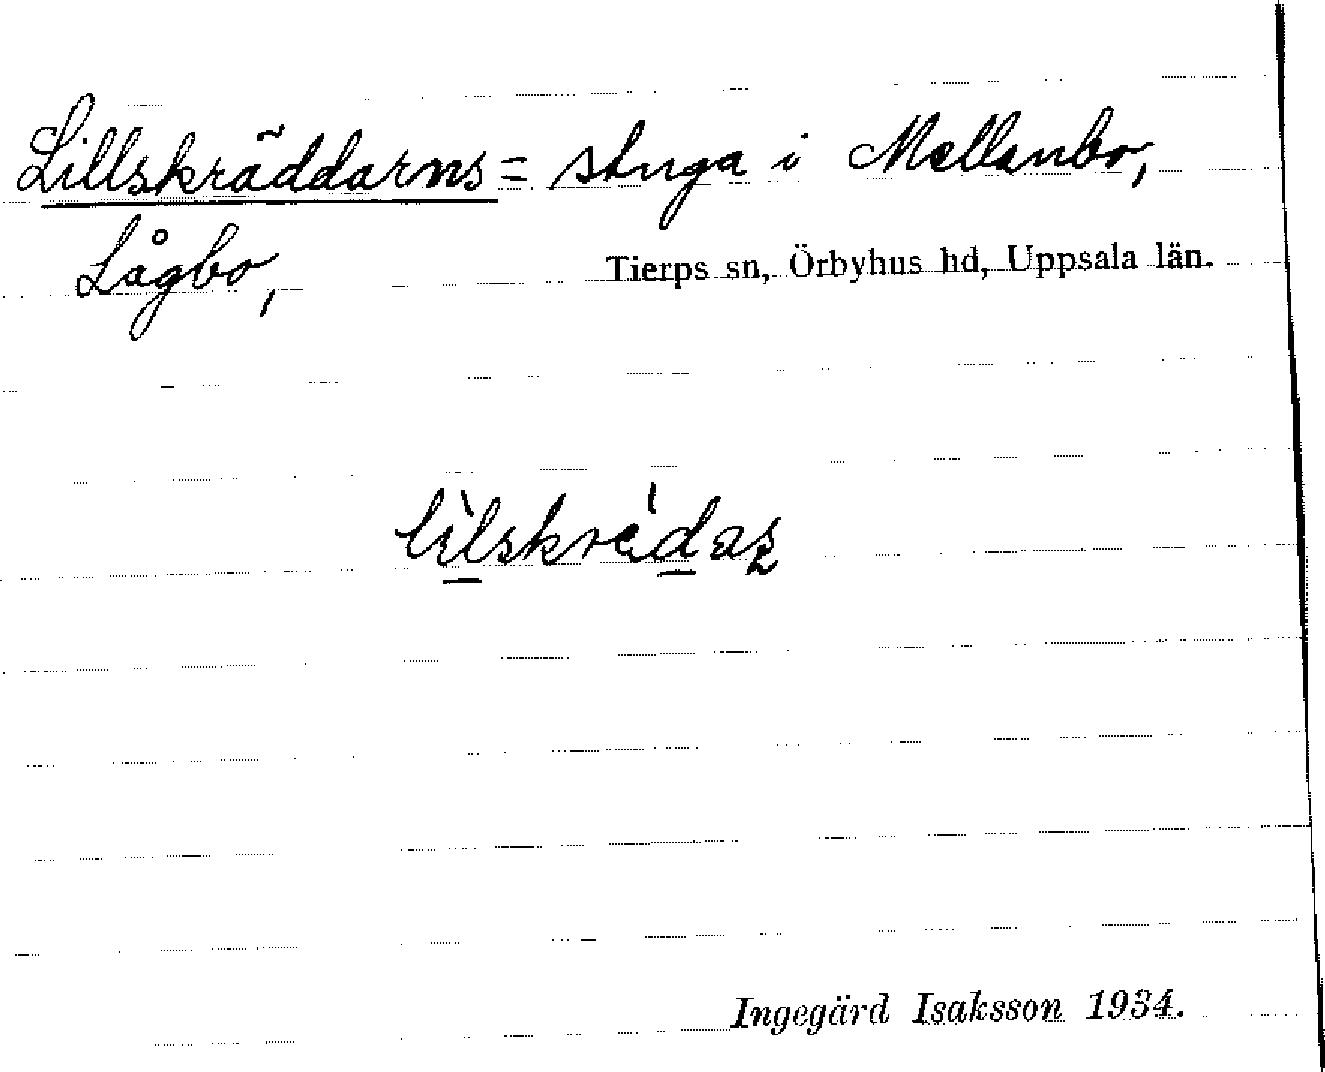 Lillskräddarns = stuga i Mellanbo,
Lågbo, Tierps sn, Örbyhus hd, Uppsala län.
Ingegärd Isaksson 1934.